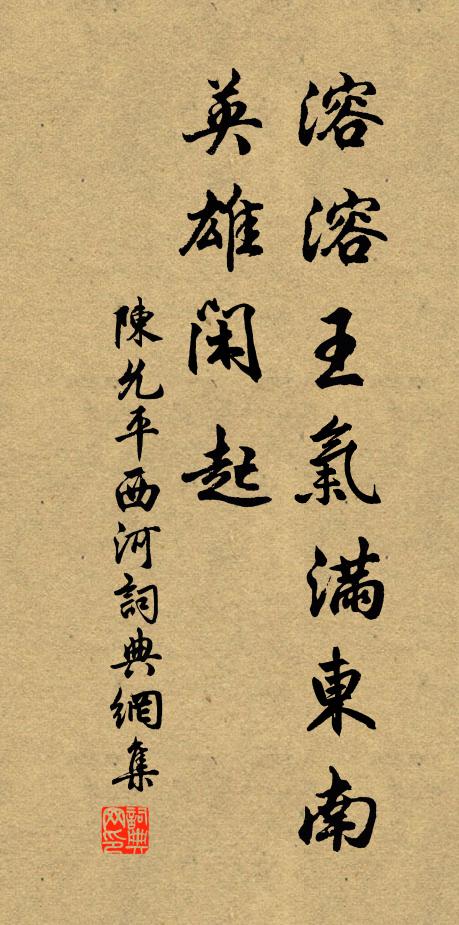 溶溶王氣滿東南
英雄閑起
陳允平西河詞典網集
詞典网印